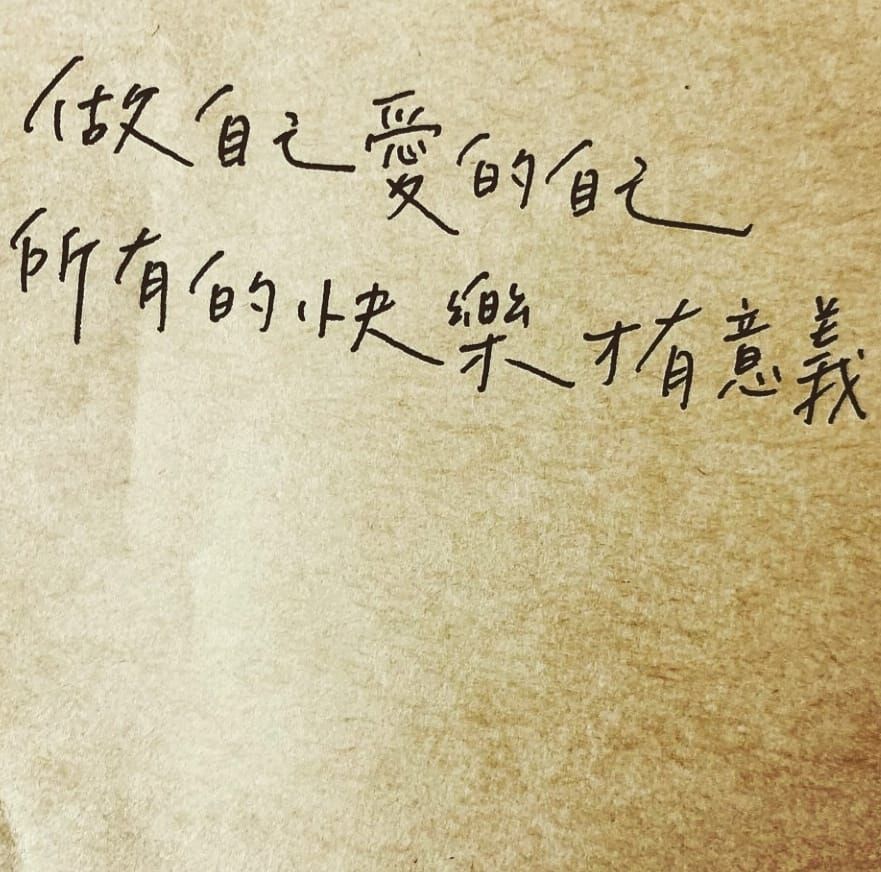 做自己愛的自己
所有的快樂才有意義